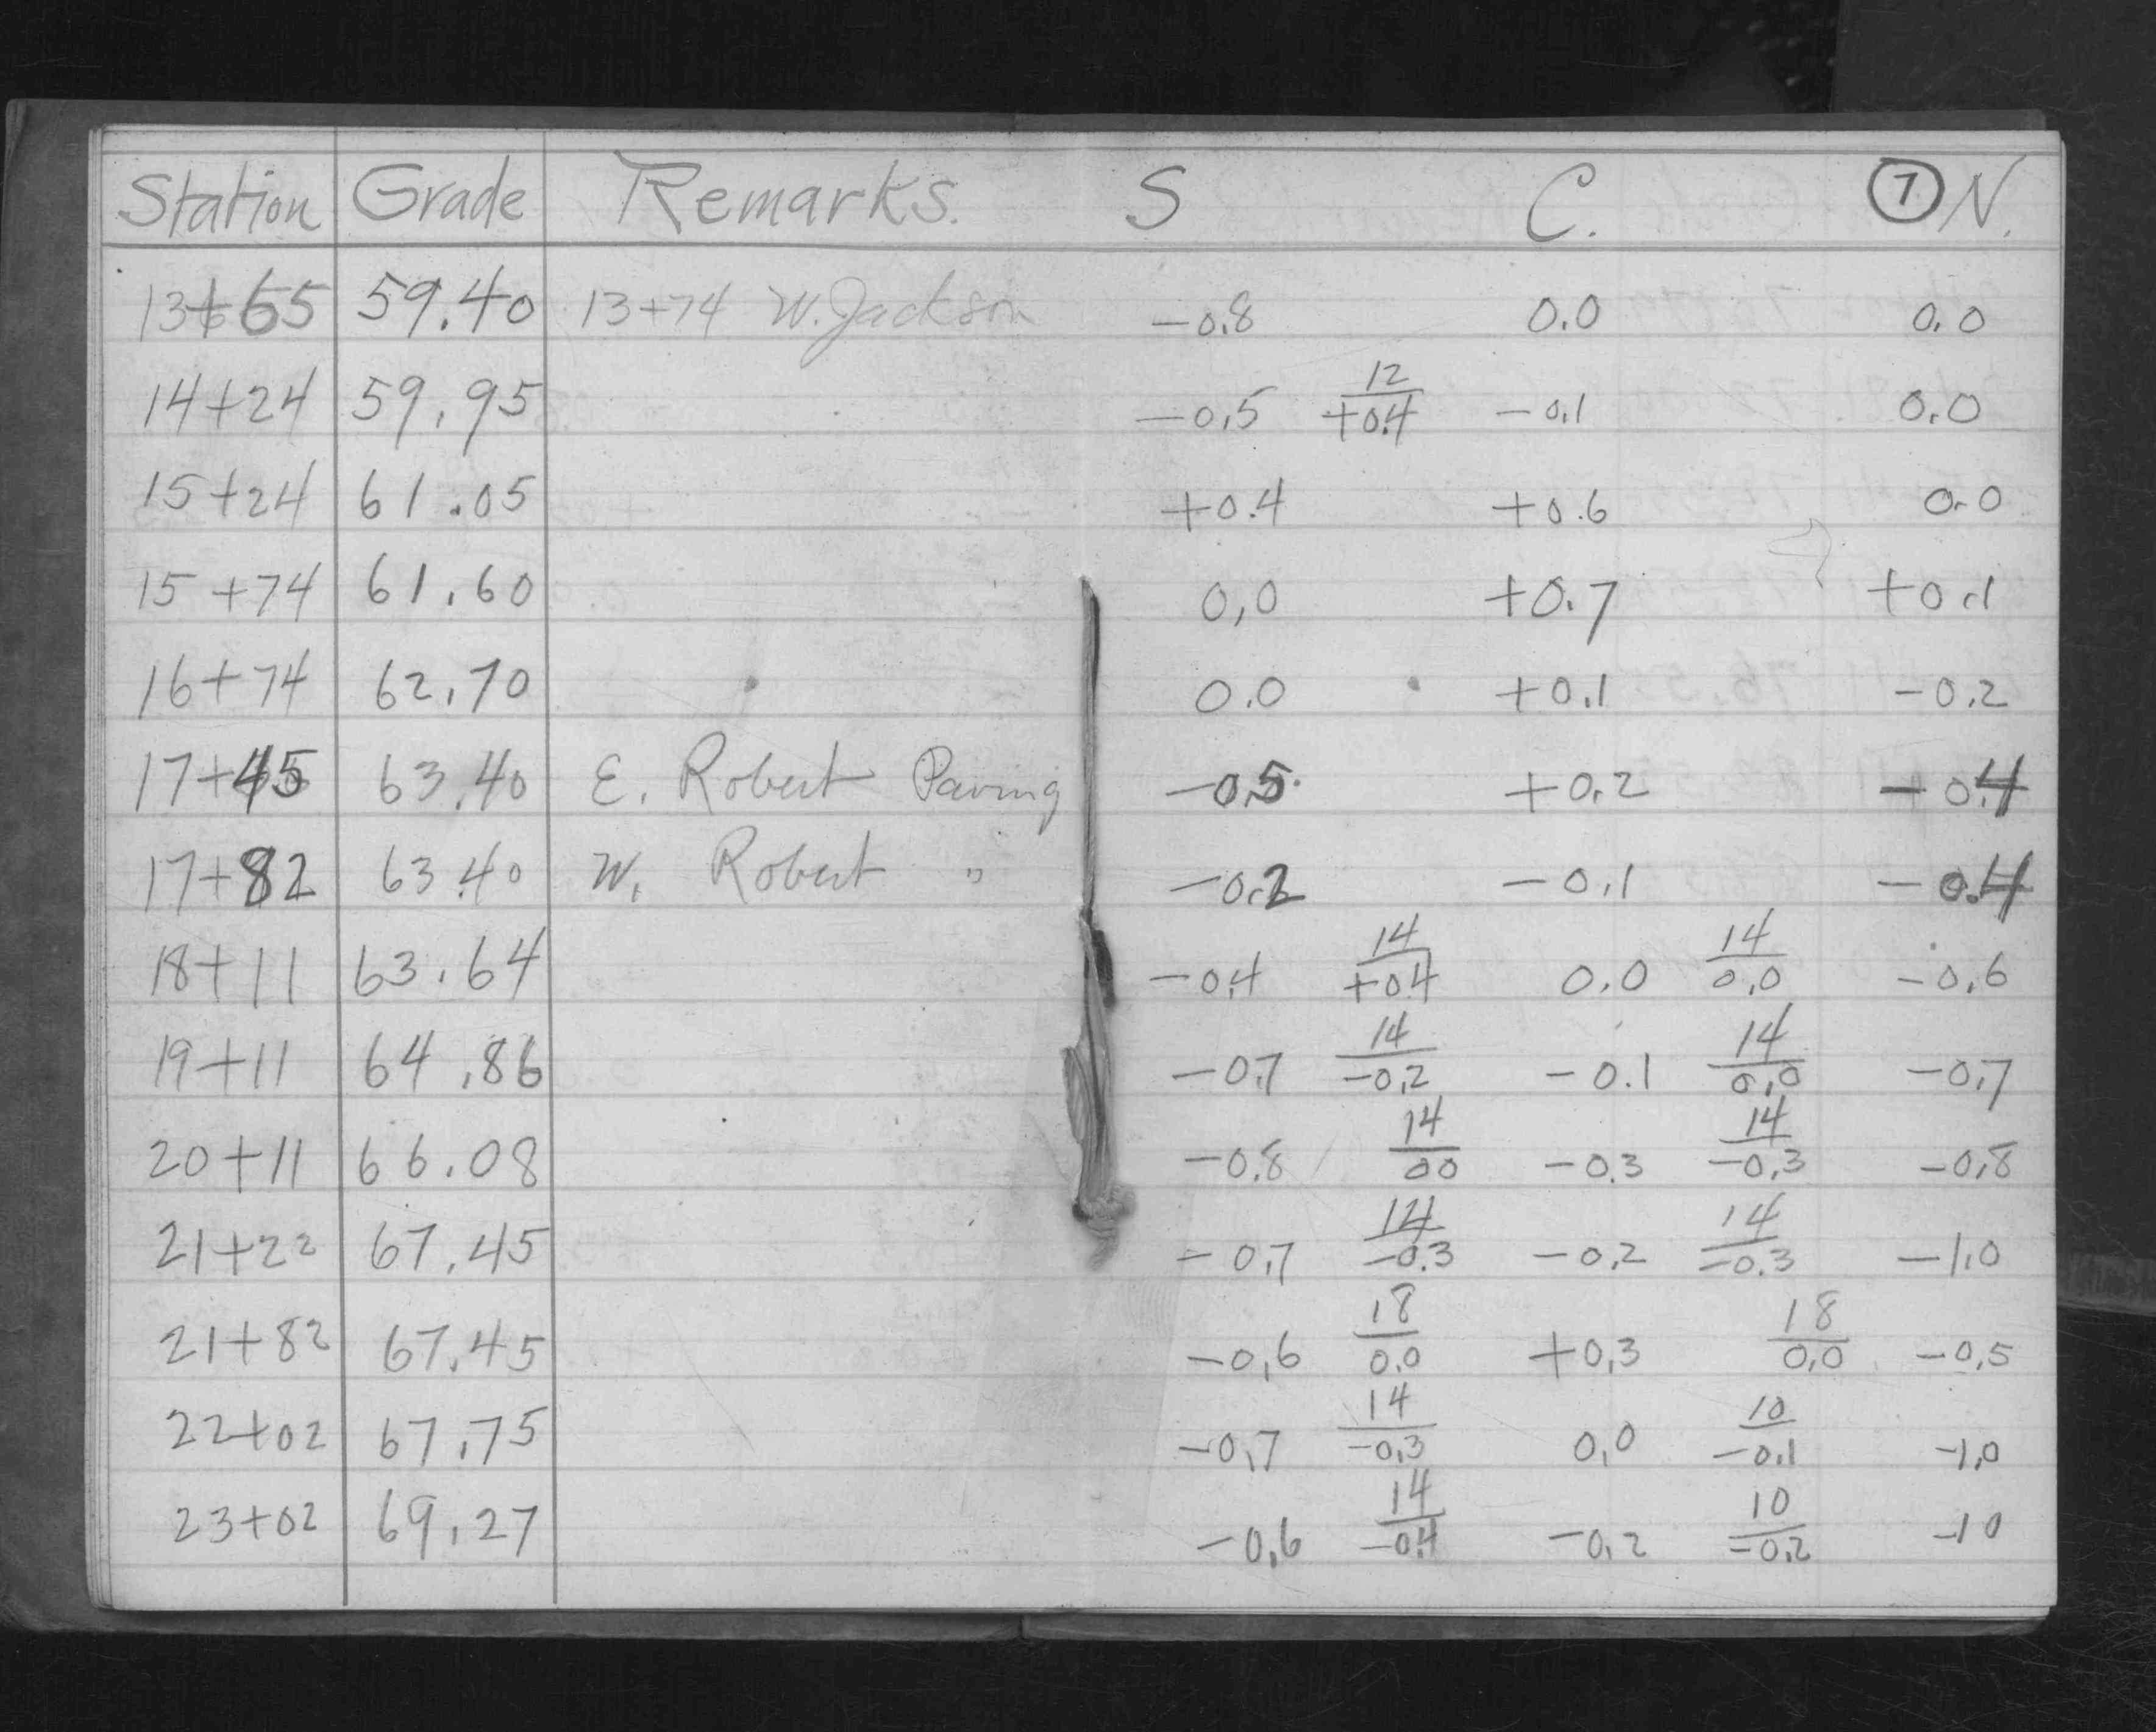 Station Grade Remarks. S C. 7 N.
13+65 59.40 13+74 W. Jackson -0.8 0.0 0.0
14+24 59.95 -0.5 12/+0.4 -0.1 0.0
15+24 61.05 +0.4 +0.6 0.0
15+74 61.60 0.0 +0.7 +0.1
16+74 62.70 0.0 +0.1 -0.2
17+45 63.40 E. Robert Paving -0.5 +0.2 -0.4
17+82 63.40 W. Robert " -0.2 -0.1 -0.4
18+11 63.64 -0.4 14/+0.4 0.0 14/0.0 -0.6
19+11 64.86 -0.7 14/-0.2 -0.1 14/0.0 -0.7
20+11 66.08 -0.8 14/00 -0.3 14/-0.3 -0.8
21+22 67.45 -0.7 14/-0.3 -0.2 14/-0.3 -1.0
21+82 67.45 -0.6 18/0.0 +0.3 18/0.0 -0.5
22+02 67.75 -0.7 14/-0.3 0.0 10/-0.1 -1.0
23+02 69.27 -0.6 14/-0.4 -0.2 10/-0.2 -10